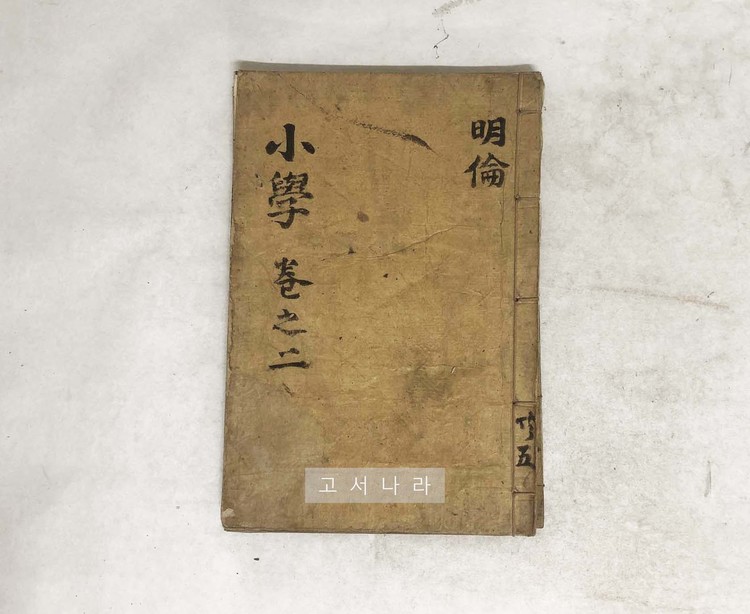 小學 卷之二
明倫
五
고서나라